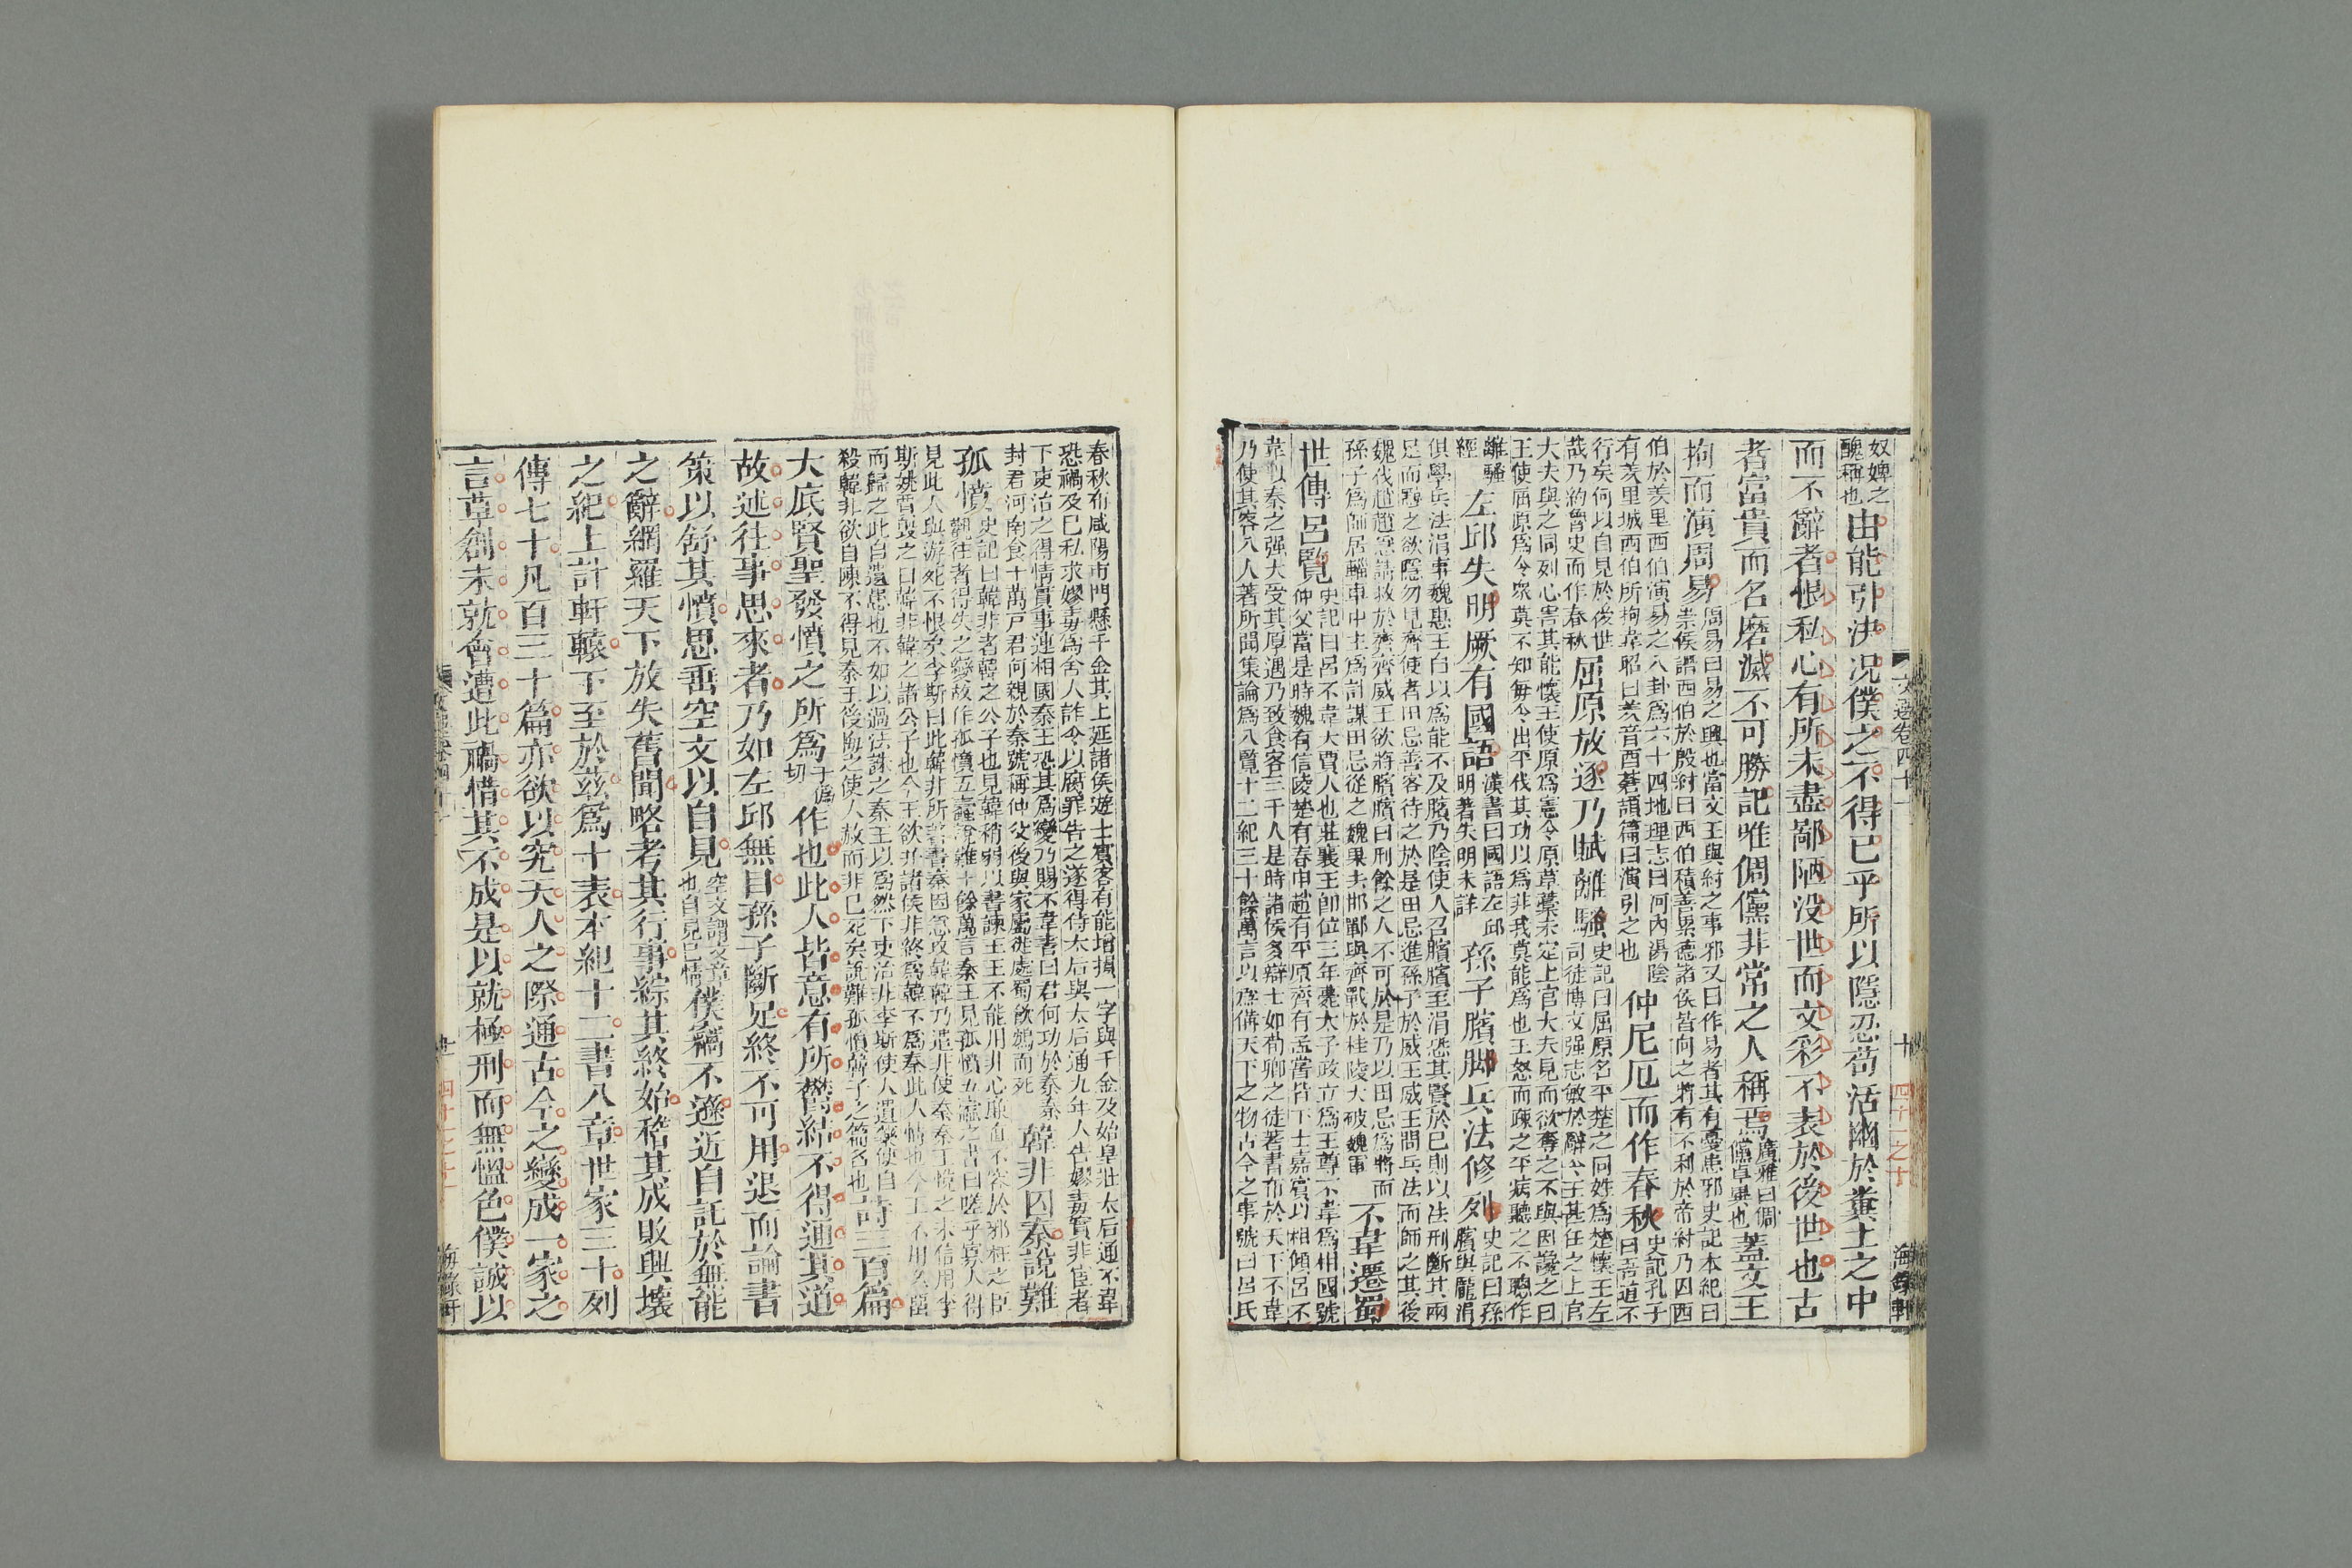 奴婢之
醜稱也
由能引決況僕之不得已乎所以隱忍苟活幽於糞土之中
而不辭者恨私心有所未盡鄙陋没世而文彩不表於後世也古
者富貴而名磨滅不可勝記唯倜儻非常之人稱焉
廣雅曰倜
儻卓異也
蓋文王
拘而演周易
周易曰易之興也當文王與紂之事邪又曰作易者其有憂患邪史記本紀曰
崇侯譖西伯於殷紂曰西伯積善累德諸侯皆向之將有不利於帝紂乃囚西
伯於羑里西伯演易之八卦爲六十四地理志曰河內湯陰
有羑里城西伯所拘韋昭曰羑音酉蒼頡篇曰演引之也
仲尼厄而作春秋
史記孔子
曰吾道不
行矣何以自見於後世
哉乃約魯史而作春秋
屈原放逐乃賦離騷
史記曰屈原名平楚之同姓爲楚懷王左
司徒博文强志敏於辭令王甚任之上官
大夫與之同列心害其能懷王使原爲憲令原草藁未定上官大夫見而欲奪之不與因讒之曰
王使屈原爲令衆莫不知每令出平伐其功以爲非我莫能爲也王怒而疎之平病聽之不聰作
離騷
經
左邱失明厥有國語
漢書曰國語左邱
明著失明未詳
孫子臏脚兵法修列
史記曰孫
臏與龐涓
俱學兵法涓事魏惠王自以爲能不及臏乃陰使人召臏臏至涓恐其賢於己則以法刑斷其兩
足而黥之欲隱勿見齊使者田忌善客待之於是田忌進孫子於威王威王問兵法而師之其後
魏伐趙趙急請救於齊齊威王欲將臏臏曰刑餘之人不可於是乃以田忌爲將而
孫子爲師居輜車中主爲計謀田忌從之魏果去邯鄲與齊戰於桂陵大破魏軍
不韋遷蜀
世傳呂覽
史記曰呂不韋大賈人也莊襄王卽位三年薨太子政立爲王尊不韋爲相國號
仲父當是時魏有信陵楚有春申趙有平原齊有孟嘗皆下士嘉賓以相傾呂不
韋以秦之强大受其厚遇乃致食客三千人是時諸侯多辯士如荀卿之徒著書布於天下不韋
乃使其客人人著所聞集論爲八覽十二紀三十餘萬言以爲備天下之物古今之事號曰呂氏
文選卷四十一
十
四十一之十
海錄軒
春秋布咸陽市門懸千金其上延諸侯遊士賓客有能增損一字與千金及始皇壯太后通不韋
恐禍及己私求嫪毐爲舍人詐令以腐罪告之遂得侍太后與太后通九年人告嫪毐實非宦者
下吏治之得情實事連相國秦王恐其爲變乃賜不韋書曰君何功於秦秦
封君河南食十萬戸君何親於秦號稱仲父後與家屬徙處蜀飮鴆而死
韓非囚秦說難
孤憤
史記曰韓非者韓之公子也見韓稍弱以書諫王王不能用非心廉直不容於邪枉之臣
觀往者得失之變故作孤憤五蠹說難十餘萬言秦王見孤憤五蠹之書曰嗟乎寡人得
見此人與游死不恨矣李斯曰此韓非所著書秦因急攻韓韓乃遣非使秦秦王悅之未信用李
斯姚賈毀之曰韓非韓之諸公子也今王欲并諸侯非終爲韓不爲秦此人情也今王不用久留
而歸之此自遺患也不如以過法誅之秦王以爲然下吏治非李斯使人遺藥使自
殺韓非欲自陳不得見秦王後悔之使人赦而非已死矣說難孤憤韓子之篇名也
詩三百篇
大底賢聖發憤之所爲
于僞
切
作也此人皆意有所鬱結不得通其道
故述往事思來者乃如左邱無目孫子斷足終不可用退而論書
策以舒其憤思垂空文以自見
空文謂文章
也自見己情
僕竊不遜近自託於無能
之辭網羅天下放失舊聞略考其行事綜其終始稽其成敗興壞
之紀上計軒轅下至於兹爲十表本紀十二書八章世家三十列
傳七十凡百三十篇亦欲以究天人之際通古今之變成一家之
言草創未就會遭此禍惜其不成是以就極刑而無慍色僕誠以